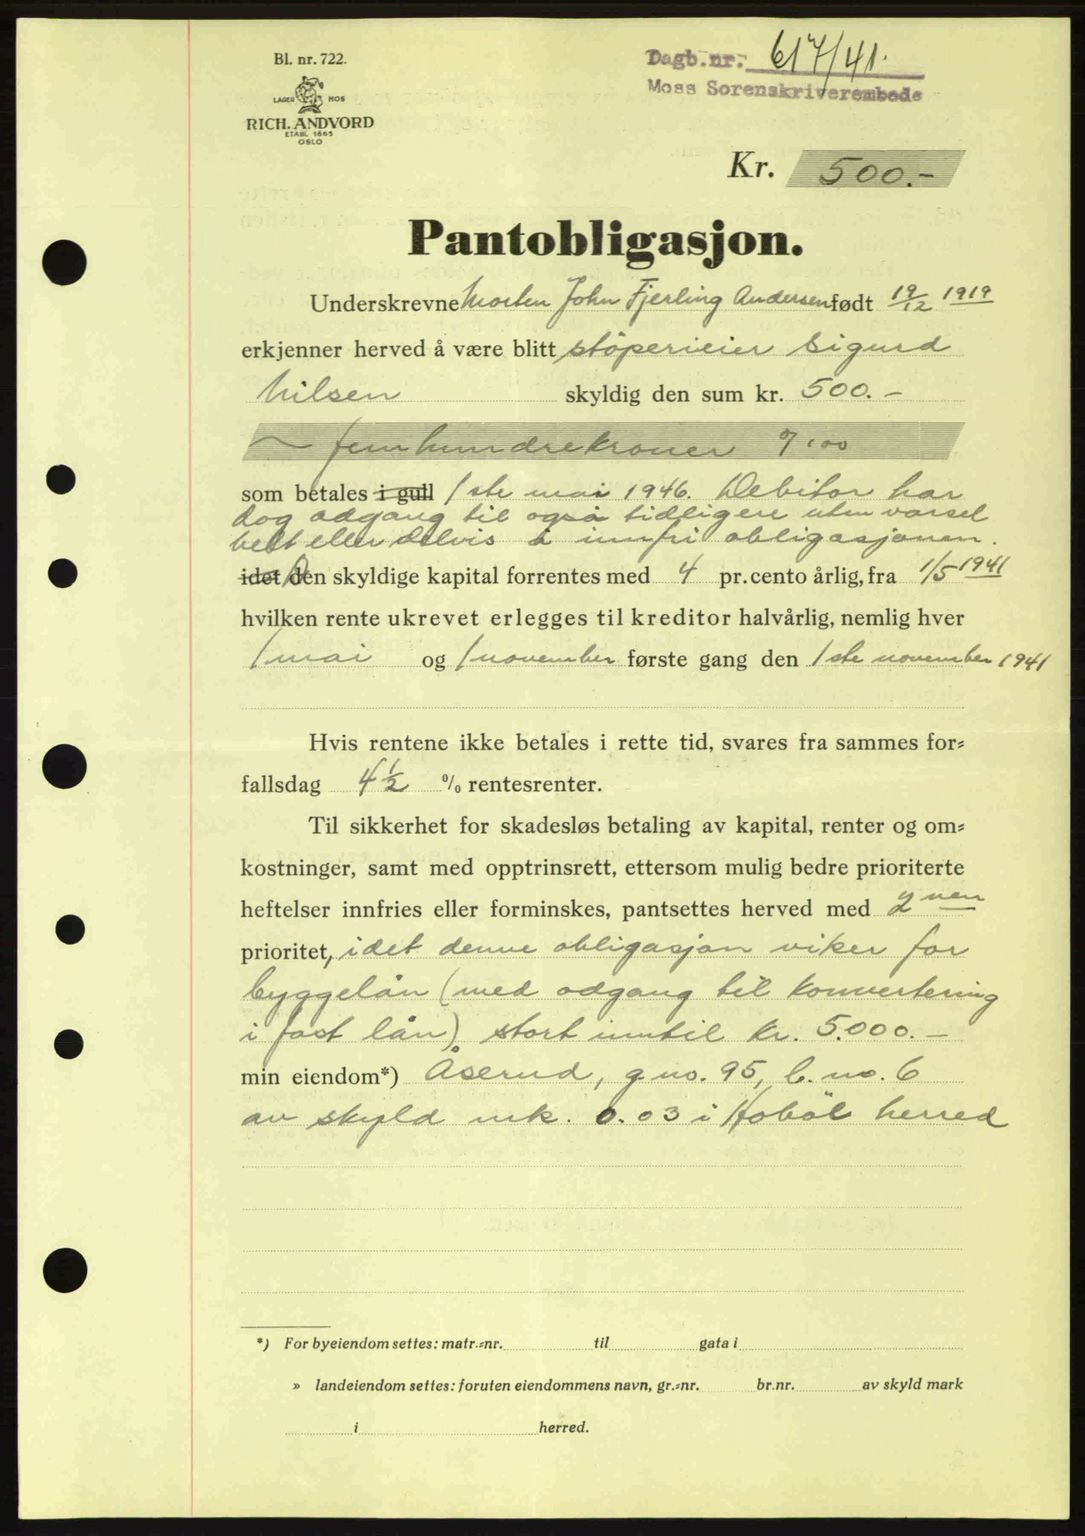 Bl. nr. 722.
LAGER HOS
RICH. ANDVORD
ETABL. 1865
OSLO
Dagb.nr. 617/41.
Moss Sorenskriverembede
Kr. 500.-
Pantobligasjon.
Underskrevne Morten John Fjerling Andersen født 19/12 1919
erkjenner herved å være blitt støperieier Sigurd
Nilsen skyldig den sum kr. 500.-
femhundrekroner 0/00
som betales i gull 1ste mai 1946. Debitor har
dog adgang til også tidligere uten varsel
helt eller delvis å innfri obligasjonen.
idet den skyldige kapital forrentes med 4 pr. cento årlig, fra 1/5 1941
hvilken rente ukrevet erlegges til kreditor halvårlig, nemlig hver
1 mai og 1 november første gang den 1ste november 1941
Hvis rentene ikke betales i rette tid, svares fra sammes for=
fallsdag 4½ % rentesrenter.
Til sikkerhet for skadesløs betaling av kapital, renter og om=
kostninger, samt med opptrinsrett, ettersom mulig bedre prioriterte
heftelser innfries eller forminskes, pantsettes herved med 2nen
prioritet, idet denne obligasjon viker for
byggelån (med adgang til konvertering
i fast lån) stort inntil kr. 5.000.-
min eiendom*) Åserud, g.no. 95, b.no. 6
av skyld mk. 0.03 i Hobøl herred
*) For byeiendom settes: matr.=nr. til gata i
» landeiendom settes: foruten eiendommens navn, gr.=nr. br.nr. av skyld mark
i herred.